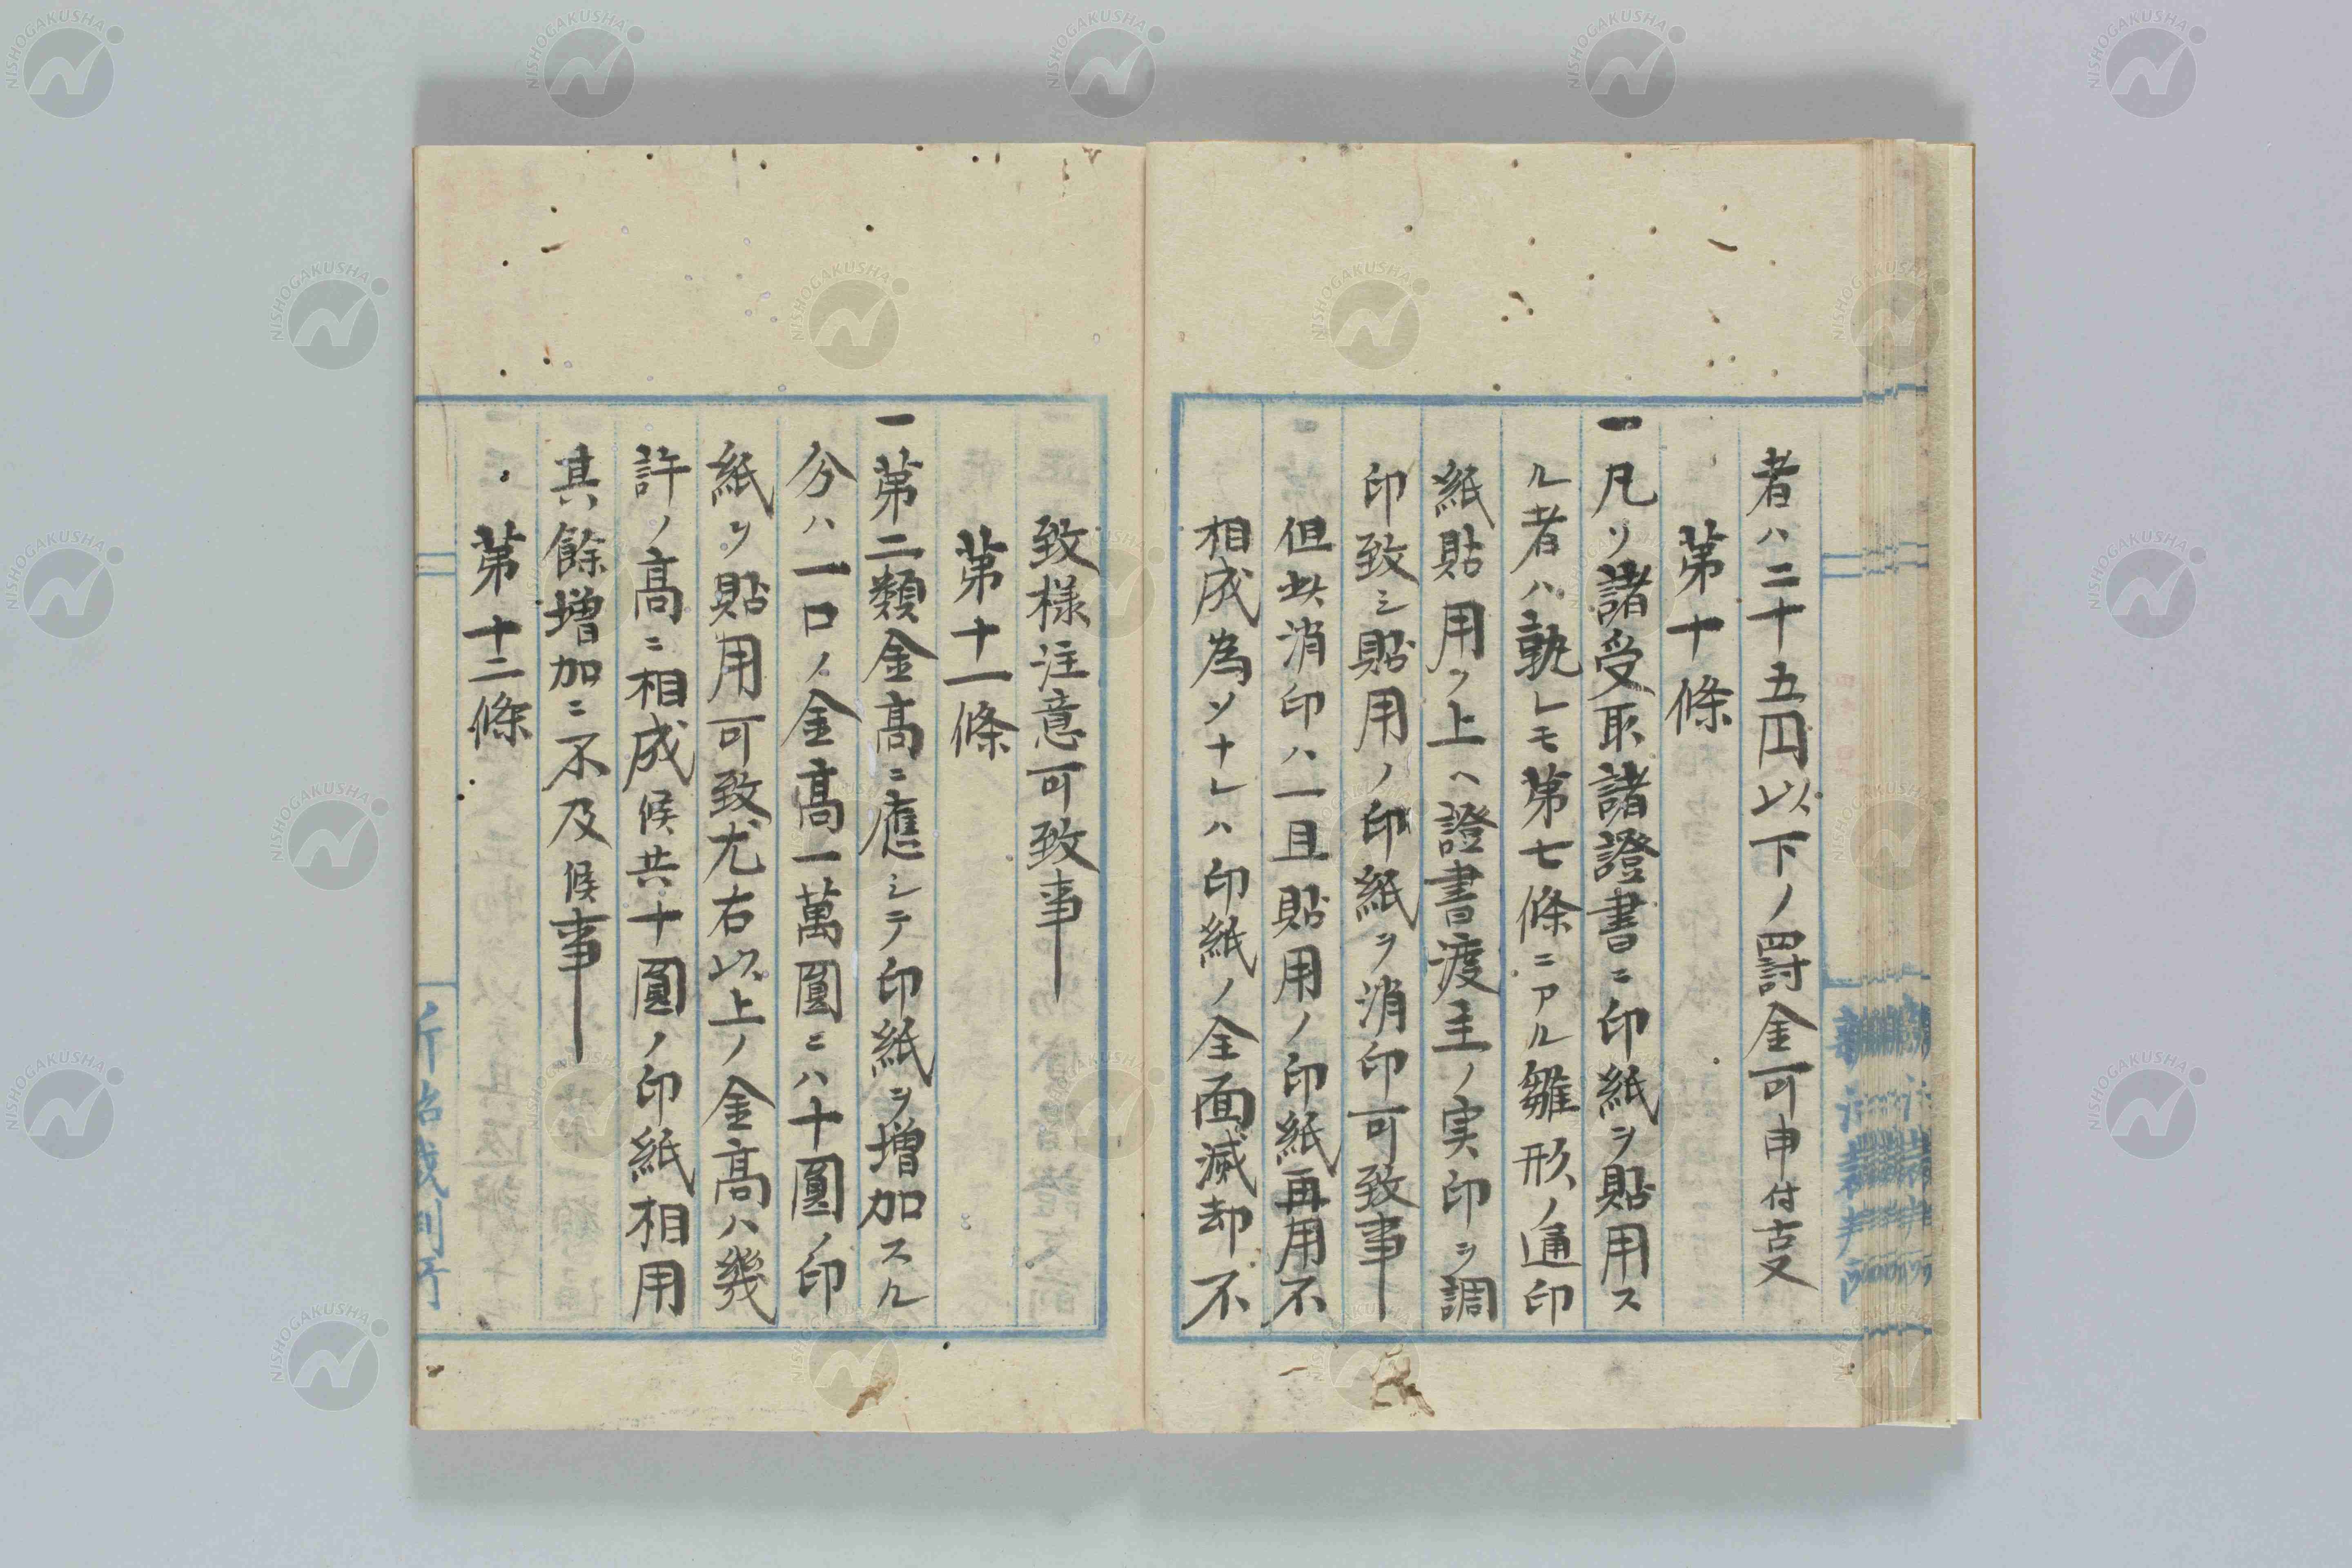 者ハ二十五円以下ノ罰金可申付事
第十條
一凡ソ諸受取諸證書ニ印紙ヲ貼用ス
ル者ハ孰レモ第七條ニアル雛形ノ通印
紙貼用ノ上ヘ證書渡主ノ実印ヲ調
印致シ貼用ノ印紙ヲ消印可致事
但此消印ハ一旦貼用ノ印紙再用不
相成為ソナレハ印紙ノ全面滅却不
致様注意可致事
第十一條
一第二類金高ニ應シテ印紙ヲ増加スル
分ハ一口ノ金高一萬圓ニハ十圓ノ印
紙ヲ貼用可致尤右以上ノ金高ハ幾
許ノ高ニ相成候共十圓ノ印紙相用
其餘増加ニ不及候事
第十二條
NISHOGAKUSHA